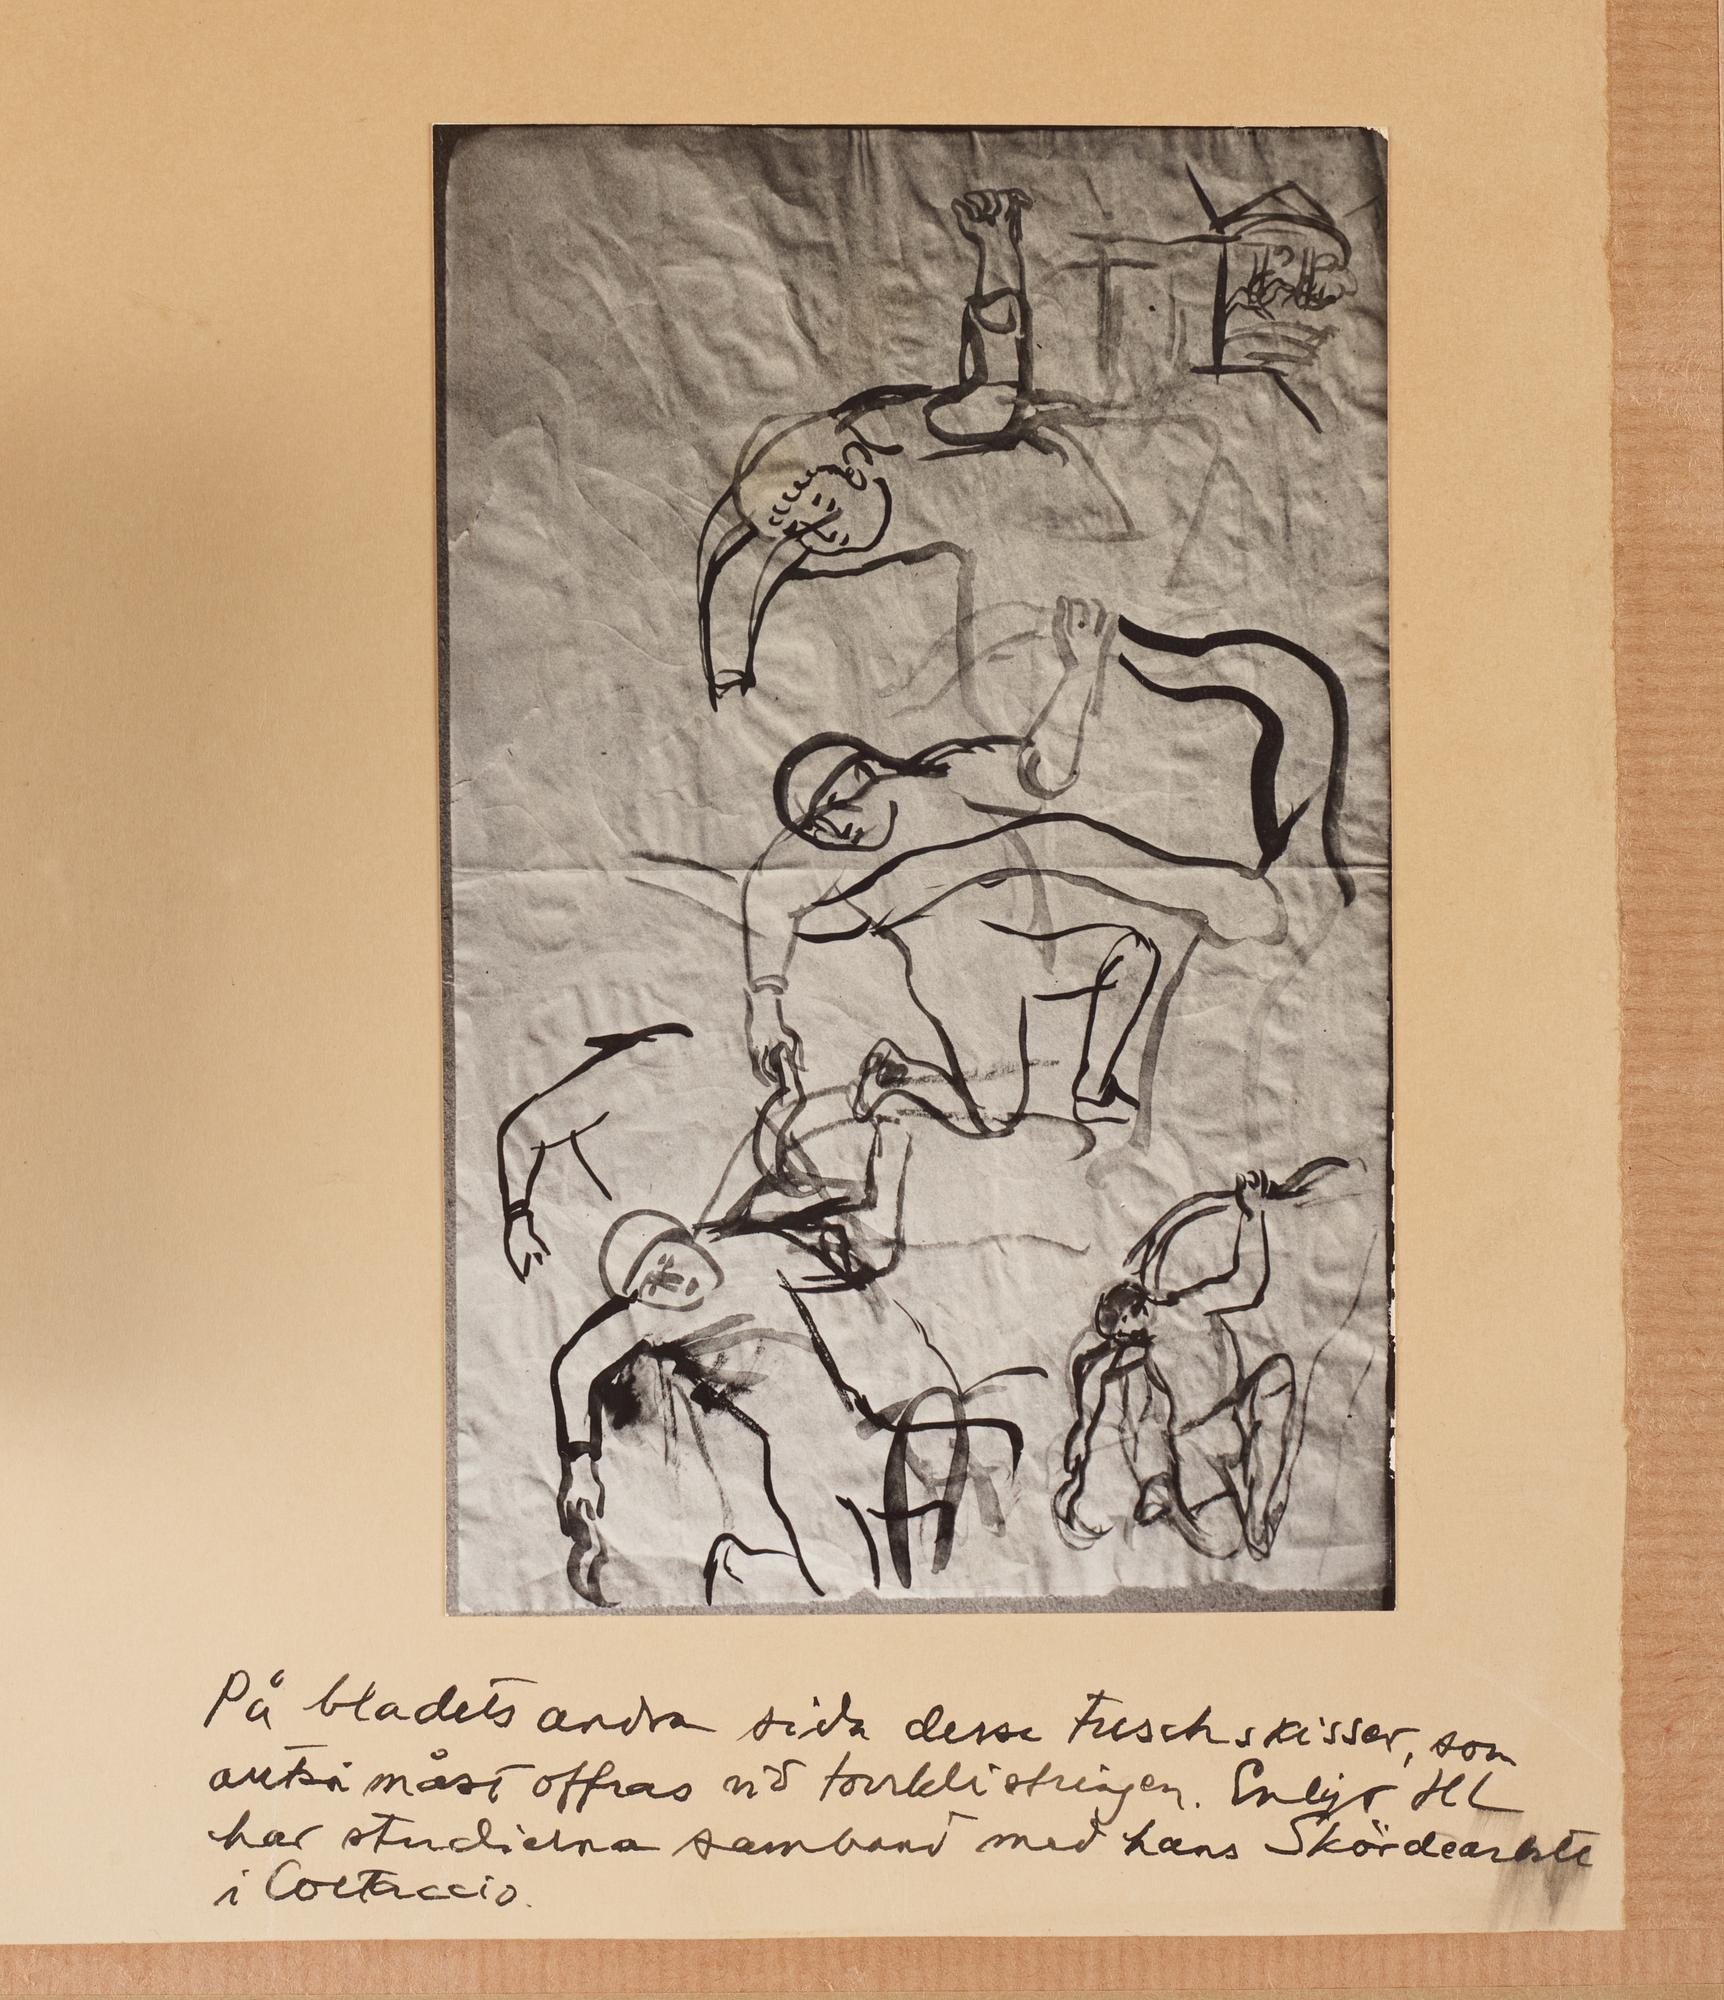 På bladets andra sida dessa tuschskisser, som
också måst offras vid torrklistringen. Enligt HL
har studierna samband med hans Skördearbete
i Corbaccio.